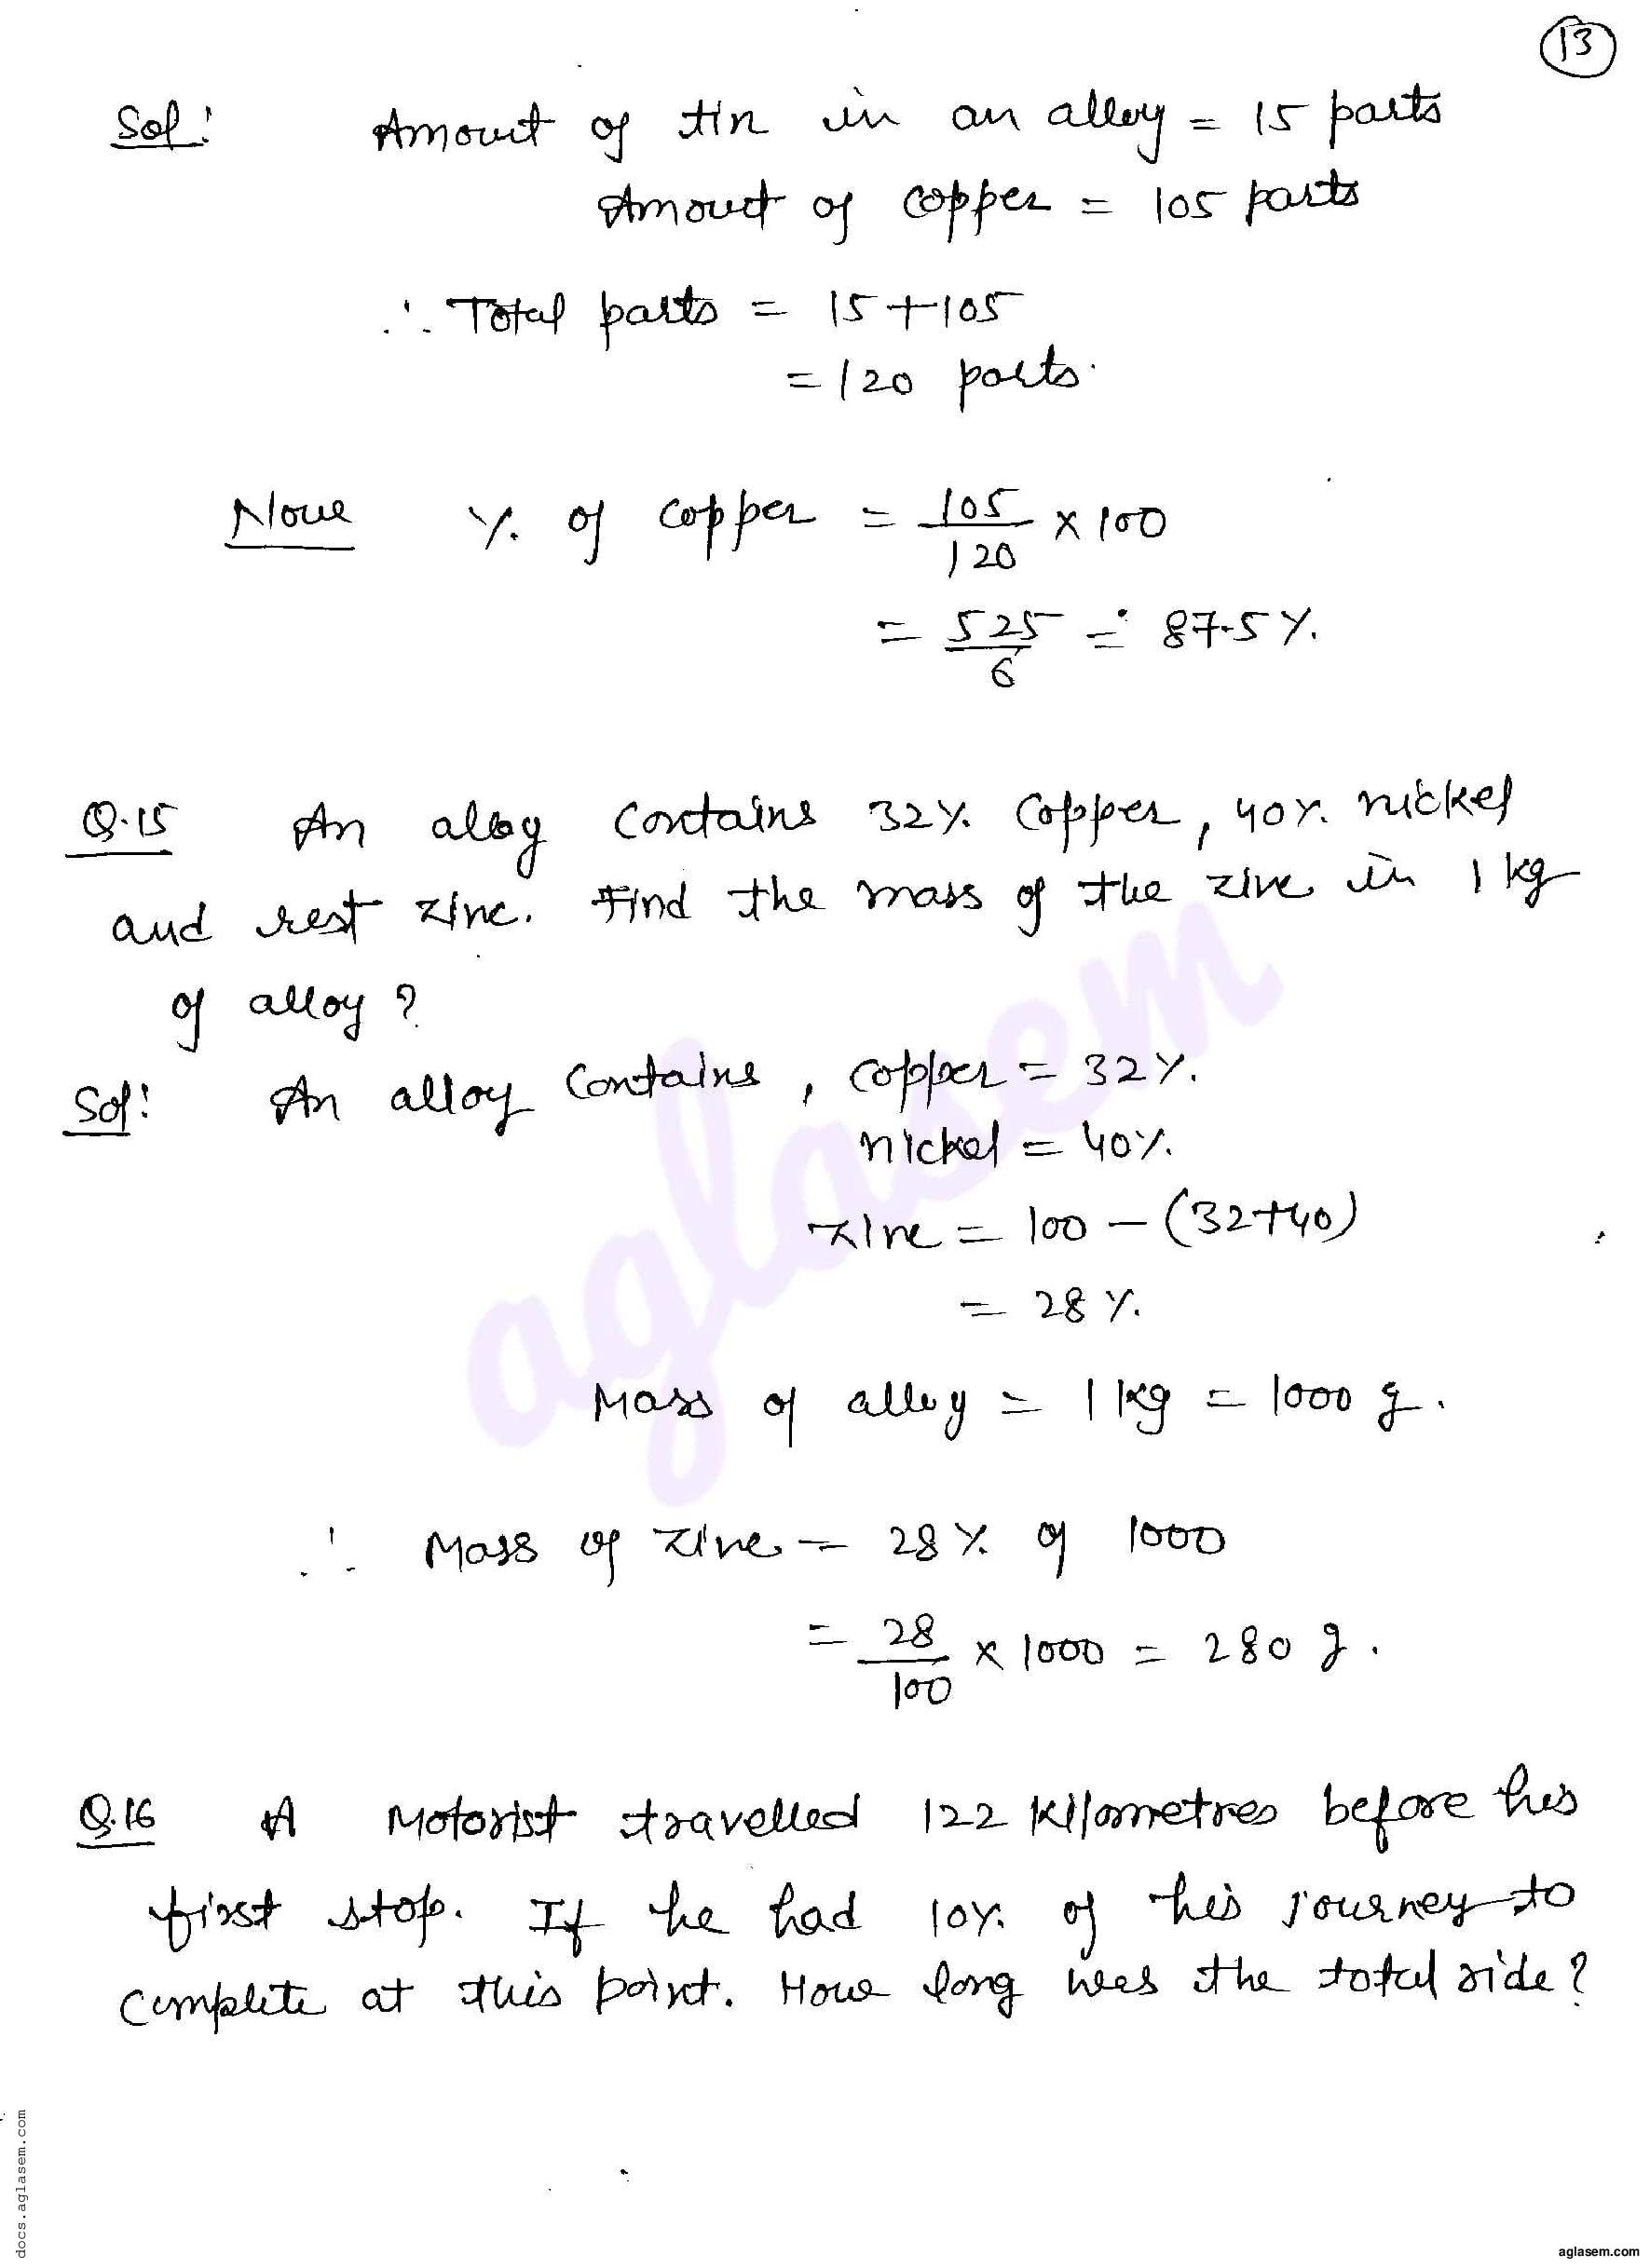 13
Sol: Amount of tin in an alloy = 15 parts
Amount of copper = 105 parts
∴ Total parts = 15+105
= 120 parts.
Now % of copper = 105/120 × 100
= 525/6 = 87.5%.
Q.15 An alloy contains 32% copper, 40% nickel
and rest zinc. Find the mass of the zinc in 1 kg
of alloy?
Sol: An alloy contains, copper = 32%.
nickel = 40%.
zinc = 100 - (32+40)
= 28%.
Mass of alloy = 1 kg = 1000 g.
∴ Mass of zinc = 28% of 1000
= 28/100 × 1000 = 280 g.
Q.16 A Motorist travelled 122 kilometres before his
first stop. If he had 10% of his journey to
complete at this point. How long was the total ride?
aglasem
docs.aglasem.com
aglasem.com